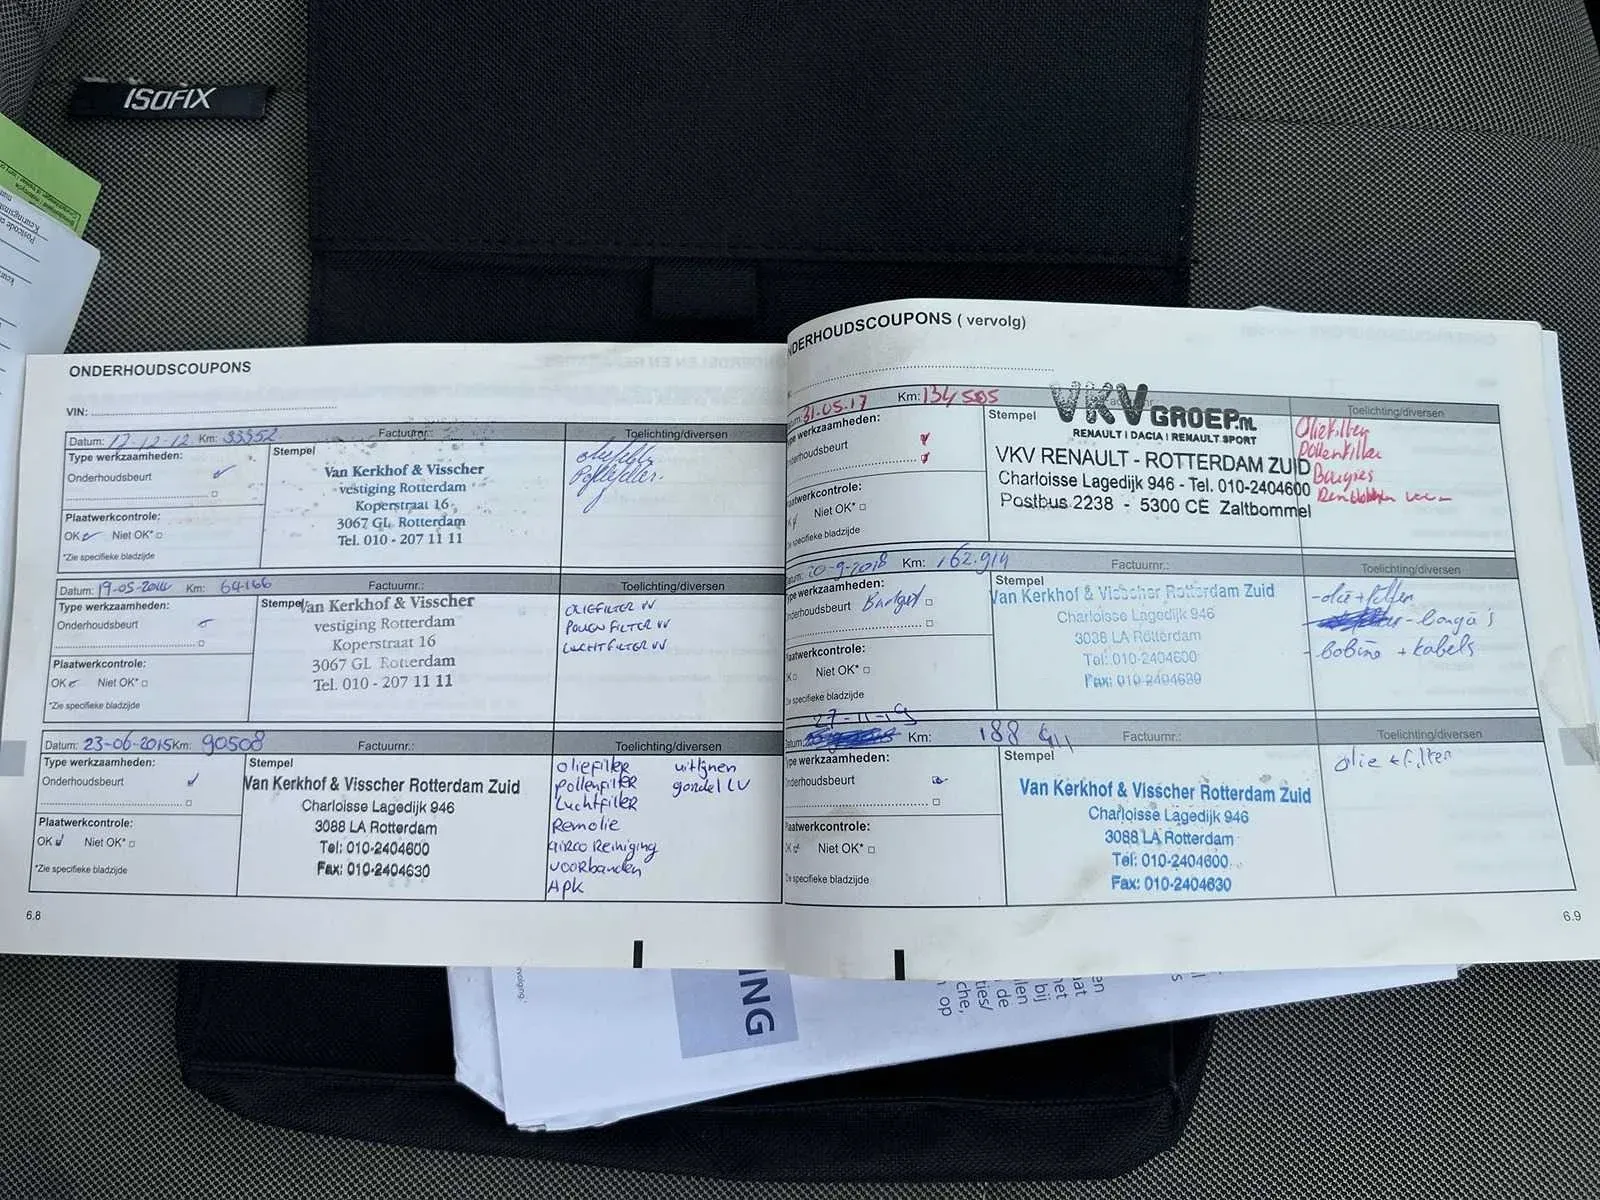 ISOFIX
ONDERHOUDSCOUPONS
VIN:
Datum: 12-12-12 Km: 33352 Factuurnr.: Toelichting/diversen
Type werkzaamheden:
Onderhoudsbeurt
Plaatwerkcontrole:
OK Niet OK*
*Zie specifieke bladzijde
Stempel
Van Kerkhof & Visscher
vestiging Rotterdam
Koperstraat 16
3067 GL Rotterdam
Tel. 010 - 207 11 11
Datum: Km: 64166 Factuurnr.: Toelichting/diversen
Type werkzaamheden:
Onderhoudsbeurt
Plaatwerkcontrole:
OK Niet OK*
*Zie specifieke bladzijde
Stempel
Van Kerkhof & Visscher
vestiging Rotterdam
Koperstraat 16
3067 GL Rotterdam
Tel. 010 - 207 11 11
OLIEFILTER VV
POLLENFILTER VV
LUCHTFILTER VV
Datum: 23-06-2015 Km: 90508 Factuurnr.: Toelichting/diversen
Type werkzaamheden:
Onderhoudsbeurt
Plaatwerkcontrole:
OK Niet OK*
*Zie specifieke bladzijde
Stempel
Van Kerkhof & Visscher Rotterdam Zuid
Charloisse Lagedijk 946
3088 LA Rotterdam
Tel: 010-2404600
Fax: 010-2404630
oliefilter uitlijnen
pollenfilter
Luchtfilter
Remolie
airco Reiniging
voorbanden
Apk
6.8
NDERHOUDSCOUPONS ( vervolg)
31-05-17 Km: 134 505 Toelichting/diversen
Type werkzaamheden:
Onderhoudsbeurt
Plaatwerkcontrole:
Niet OK*
Zie specifieke bladzijde
Stempel
VKV GROEP.NL
RENAULT | DACIA | RENAULT SPORT
VKV RENAULT - ROTTERDAM ZUID
Charloisse Lagedijk 946 - Tel. 010-2404600
Postbus 2238 - 5300 CE Zaltbommel
Oliefilter
Pollenfilter
Bougies
20-9-2018 Km: 162.914 Factuurnr.: Toelichting/diversen
Type werkzaamheden:
Onderhoudsbeurt Budget
Plaatwerkcontrole:
Niet OK*
Zie specifieke bladzijde
Stempel
Van Kerkhof & Visscher Rotterdam Zuid
Charloisse Lagedijk 946
3088 LA Rotterdam
Tel: 010-2404600
Fax: 010-2404630
- olie + filter
- bougie's
- bobine + kabels
27-11-19
Datum: Km: 188 Factuurnr.: Toelichting/diversen
Type werkzaamheden:
Onderhoudsbeurt
Plaatwerkcontrole:
Niet OK*
Zie specifieke bladzijde
Stempel
Van Kerkhof & Visscher Rotterdam Zuid
Charloisse Lagedijk 946
3088 LA Rotterdam
Tel: 010-2404600
Fax: 010-2404630
olie + filter
6.9
ING